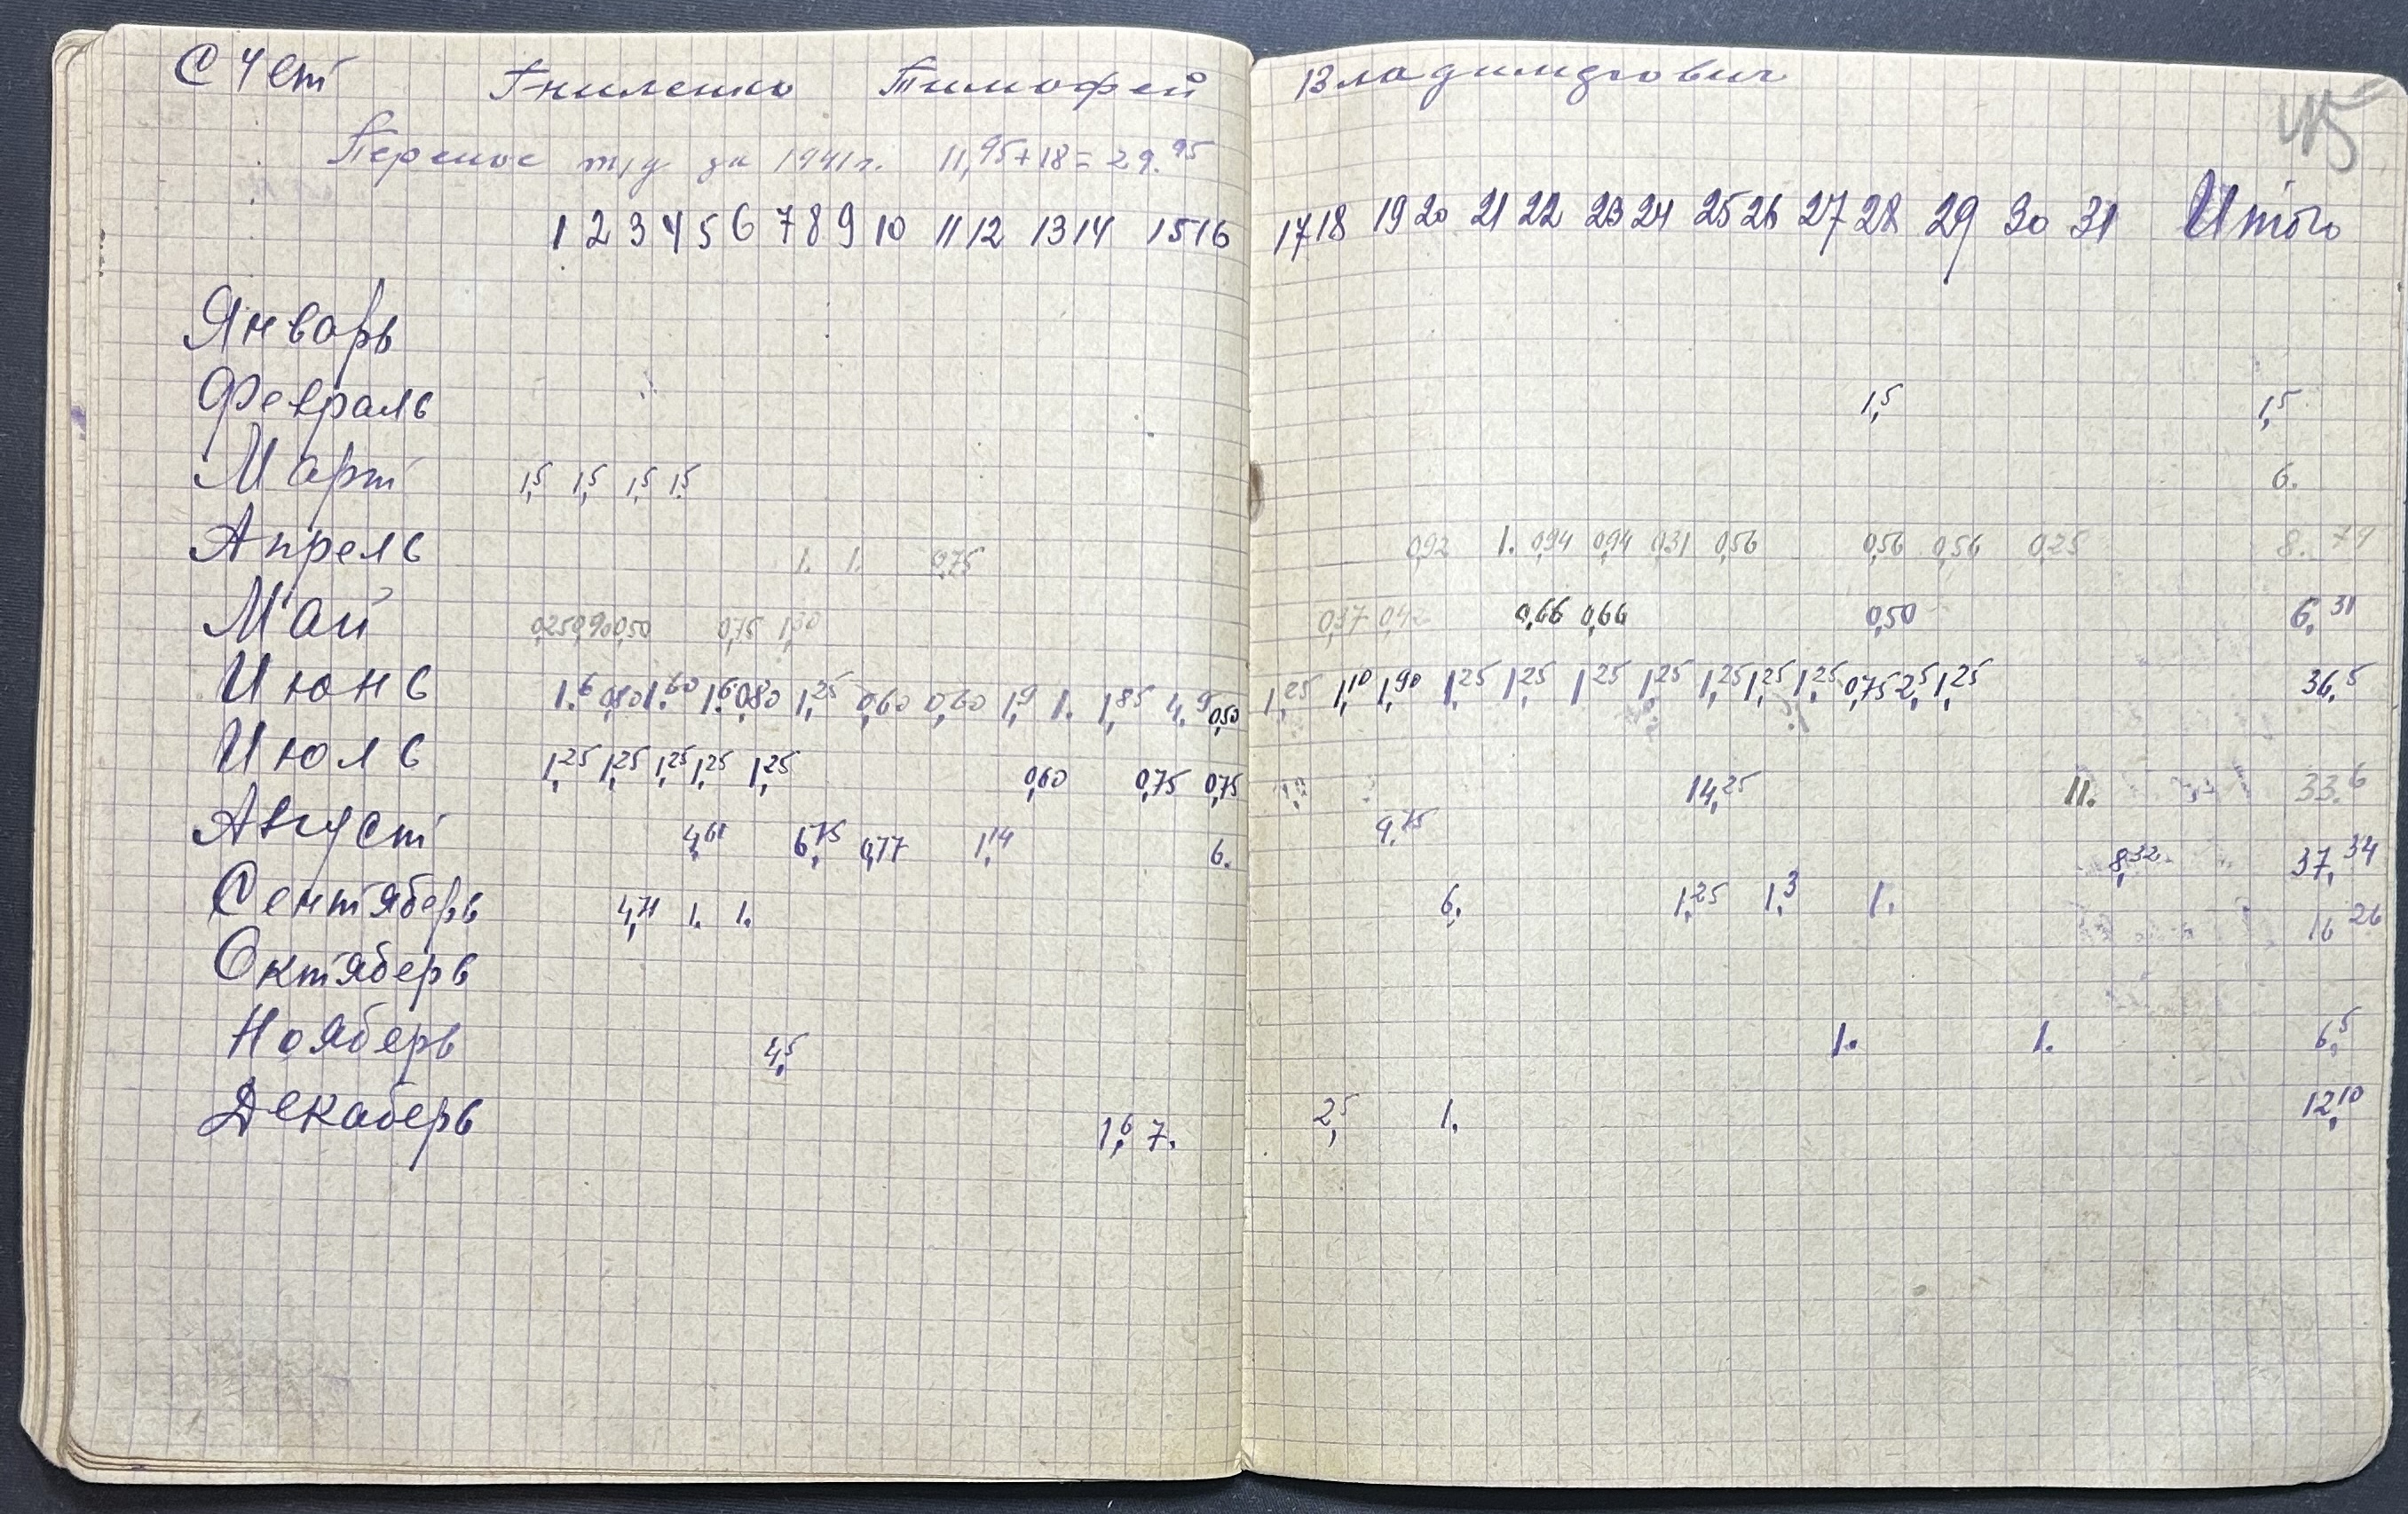 Счет Гниленко Тимофей Владимирович
45
Перенос т/д за 1941 г. 11,95 + 18 = 29.95
1 2 3 4 5 6 7 8 9 10 11 12 13 14 15 16 17 18 19 20 21 22 23 24 25 26 27 28 29 30 31 Итого
Январь
Февраль 1,5 1,5
Март 1,5 1,5 1,5 1.5 6.
Апрель 1. 1. 0,75 0,92 1. 0,94 0,94 0,31 0,56 0,56 0,56 0,25 8.79
Май 0,25 0,90 0,50 0,75 1,30 0,37 0,42 0,66 0,66 0,50 6,31
Июнь 1.6 0,80 1.60 1.6 0,80 1,25 0,60 0,60 1,9 1. 1,85 4.9 0,50 1,25 1,10 1,90 1,25 1,25 1,25 1,25 1,25 1,25 1,25 0,75 2,5 1,25 36,5
Июль 1,25 1,25 1,25 1,25 1,25 0,60 0,75 0,75 14,25 11. 33.6
Август 4,61 6,75 0,77 1,14 6. 9,75 8,32 37,34
Сентяберь 4,71 1. 1. 6. 1,25 1,3 1. 16 26
Октяберь
Нояберь 4,5 1. 1. 6,5
Декаберь 1,6 7. 2,5 1. 12,10